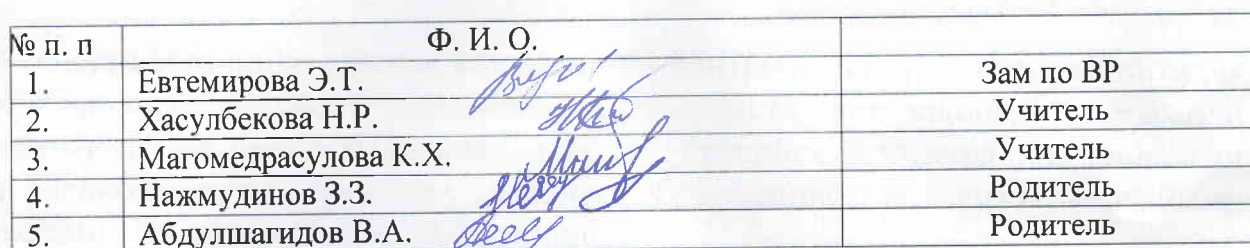 № п. п Ф. И. О.
1. Евтемирова Э.Т. Зам по ВР
2. Хасулбекова Н.Р. Учитель
3. Магомедрасулова К.Х. Учитель
4. Нажмудинов З.З. Родитель
5. Абдулшагидов В.А. Родитель